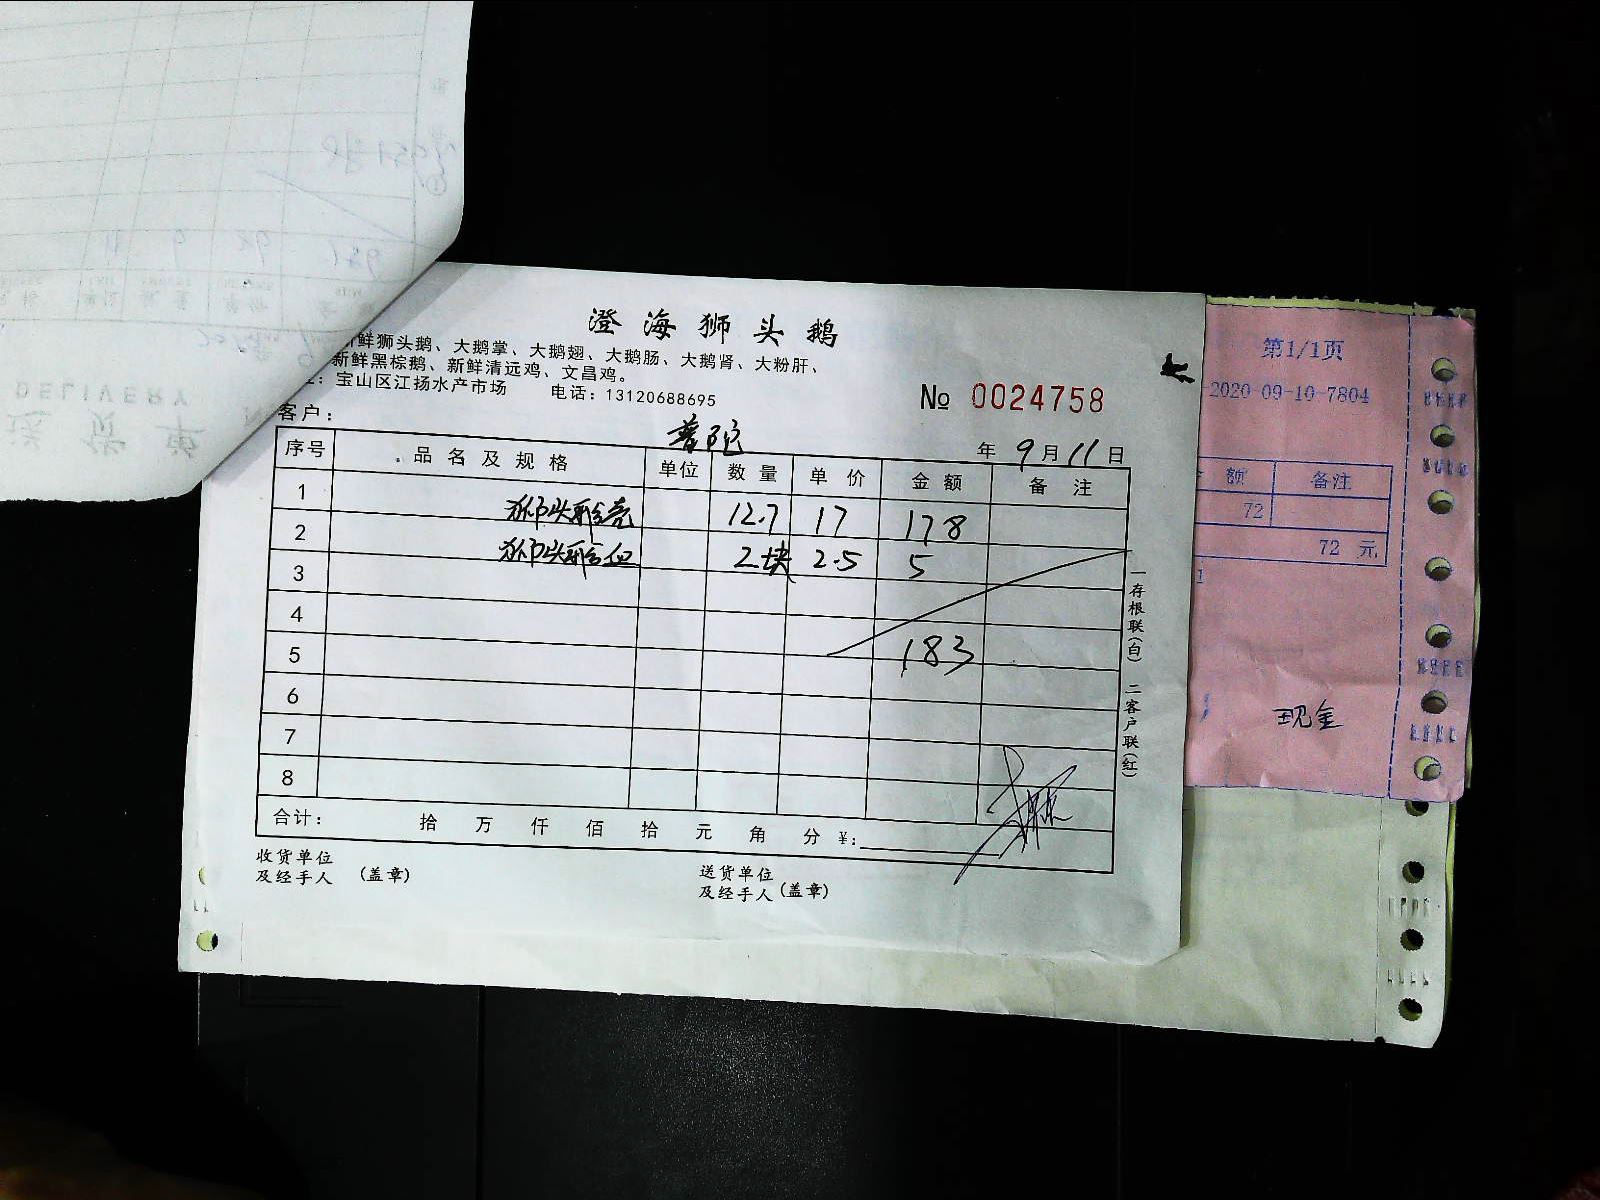 澄海狮头鹅
新鲜狮头鹅、大鹅掌、大鹅翅、大鹅肠、大鹅肾、大粉肝、
新鲜黑棕鹅、新鲜清远鸡、文昌鸡。
：宝山区江扬水产市场 电话：13120688695
№ 0024758
客户： 普陀 年 9 月 11 日
序号 品名及规格 单位 数量 单价 金额 备注
1 狮头鹅壳 12.7 17 178
2 狮头鹅血 2块 2.5 5
3
4
5 183
6
7
8
合计： 拾 万 仟 佰 拾 元 角 分 ￥：
收货单位
及经手人 （盖章）
送货单位
及经手人（盖章）
一存根联（白） 二客户联（红）
第1/1页
-2020-09-10-7804
额 备注
72
72 元
现金
DELIVERY
送货单